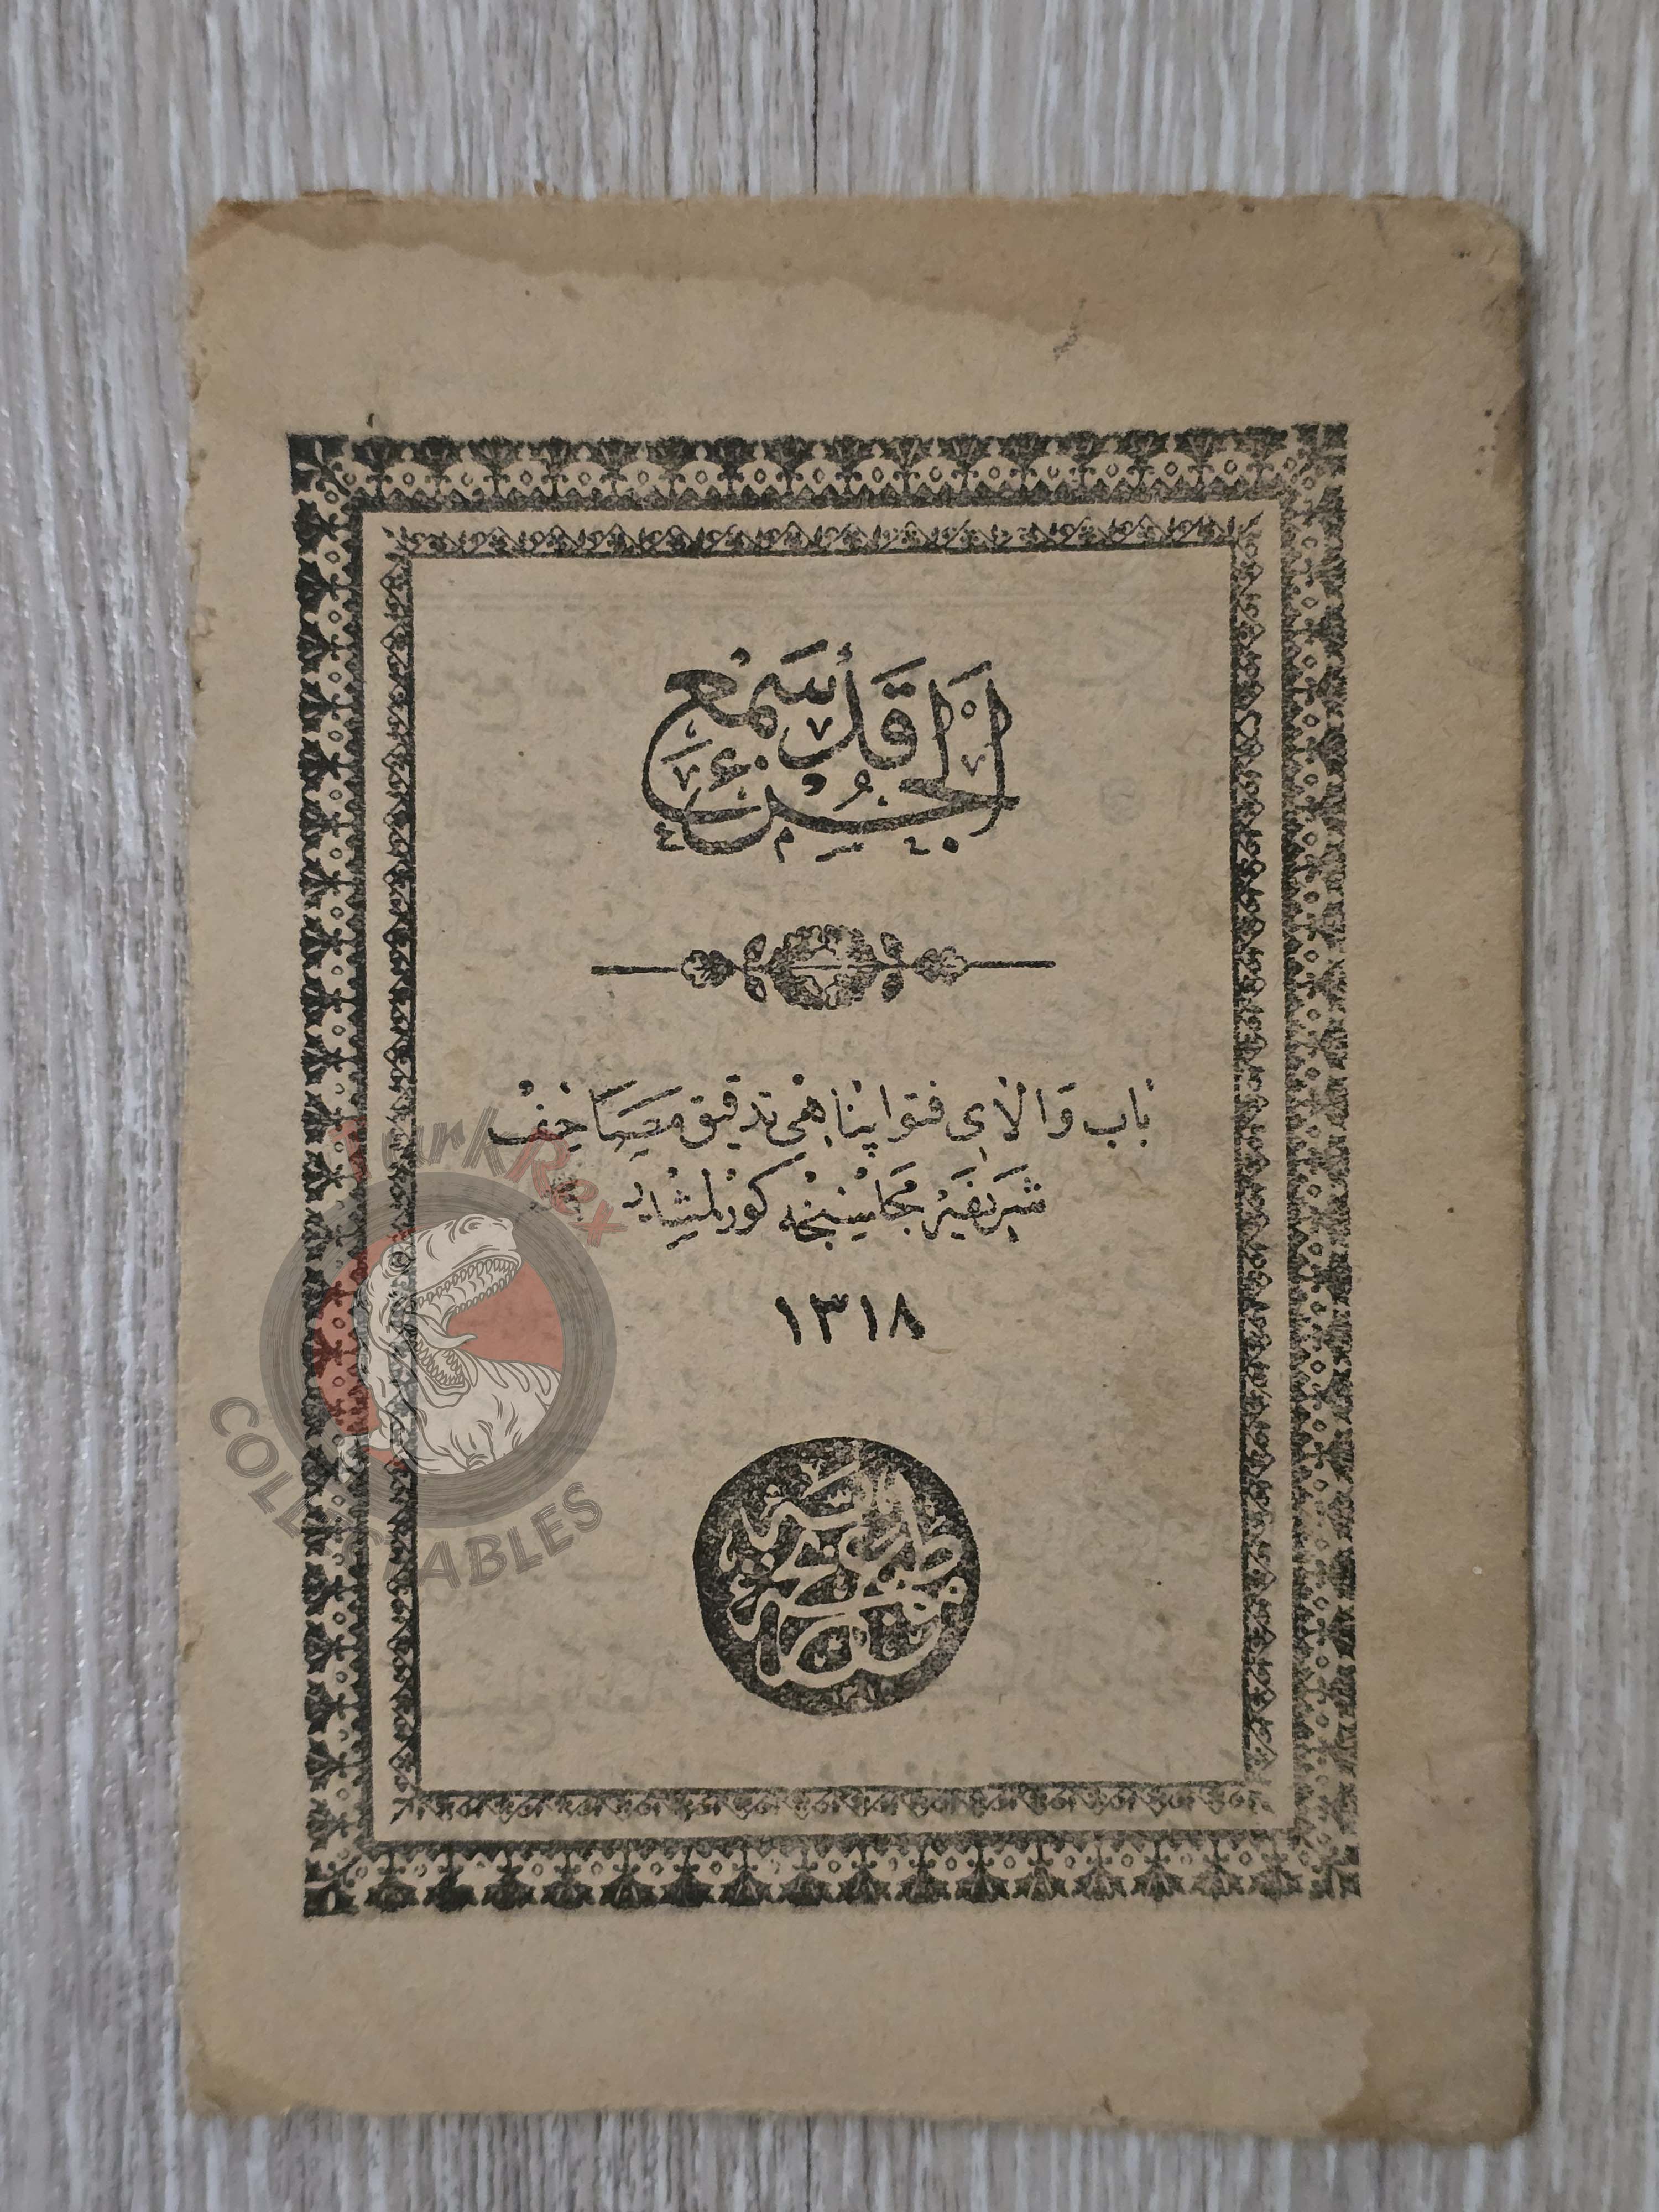 الجزء قد سمع
باب والای فتواپناهی تدقیق مصاحف
شریفه مجلسنجه کورلمشدر
١٣١٨
TurkRex
COLLECTABLES